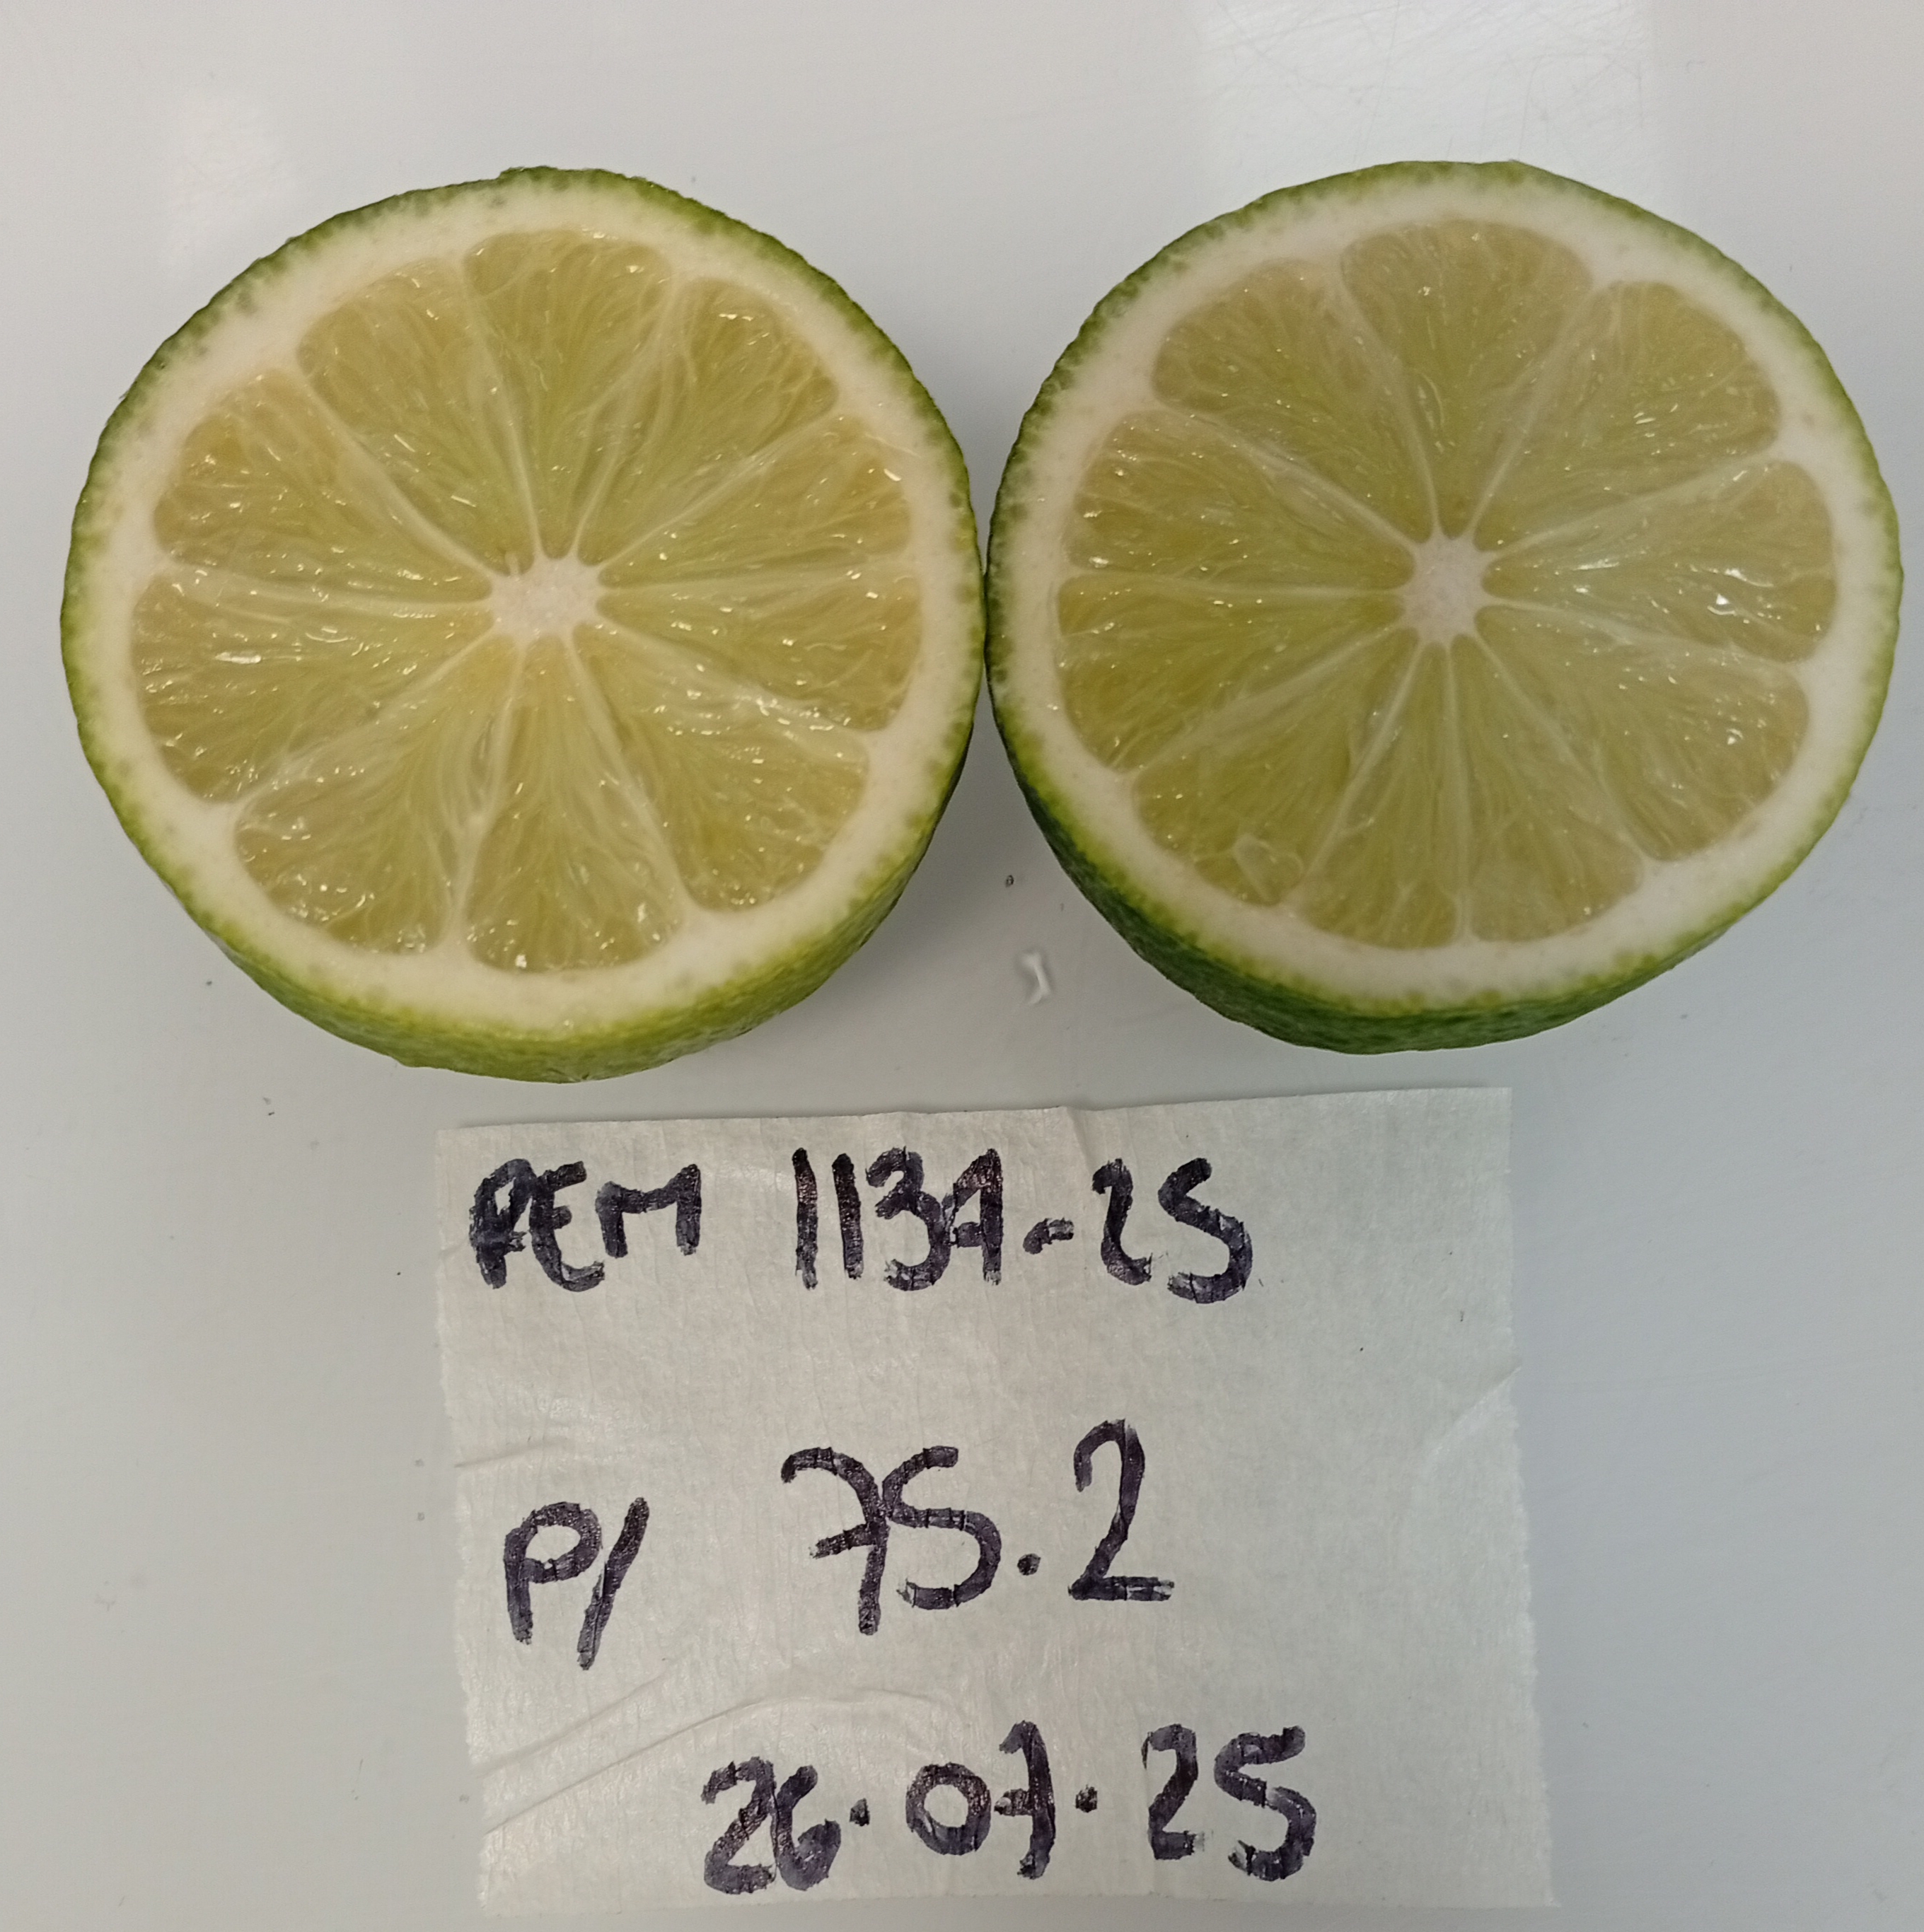 REM 1137-25
P/ 75.2
26.07.25